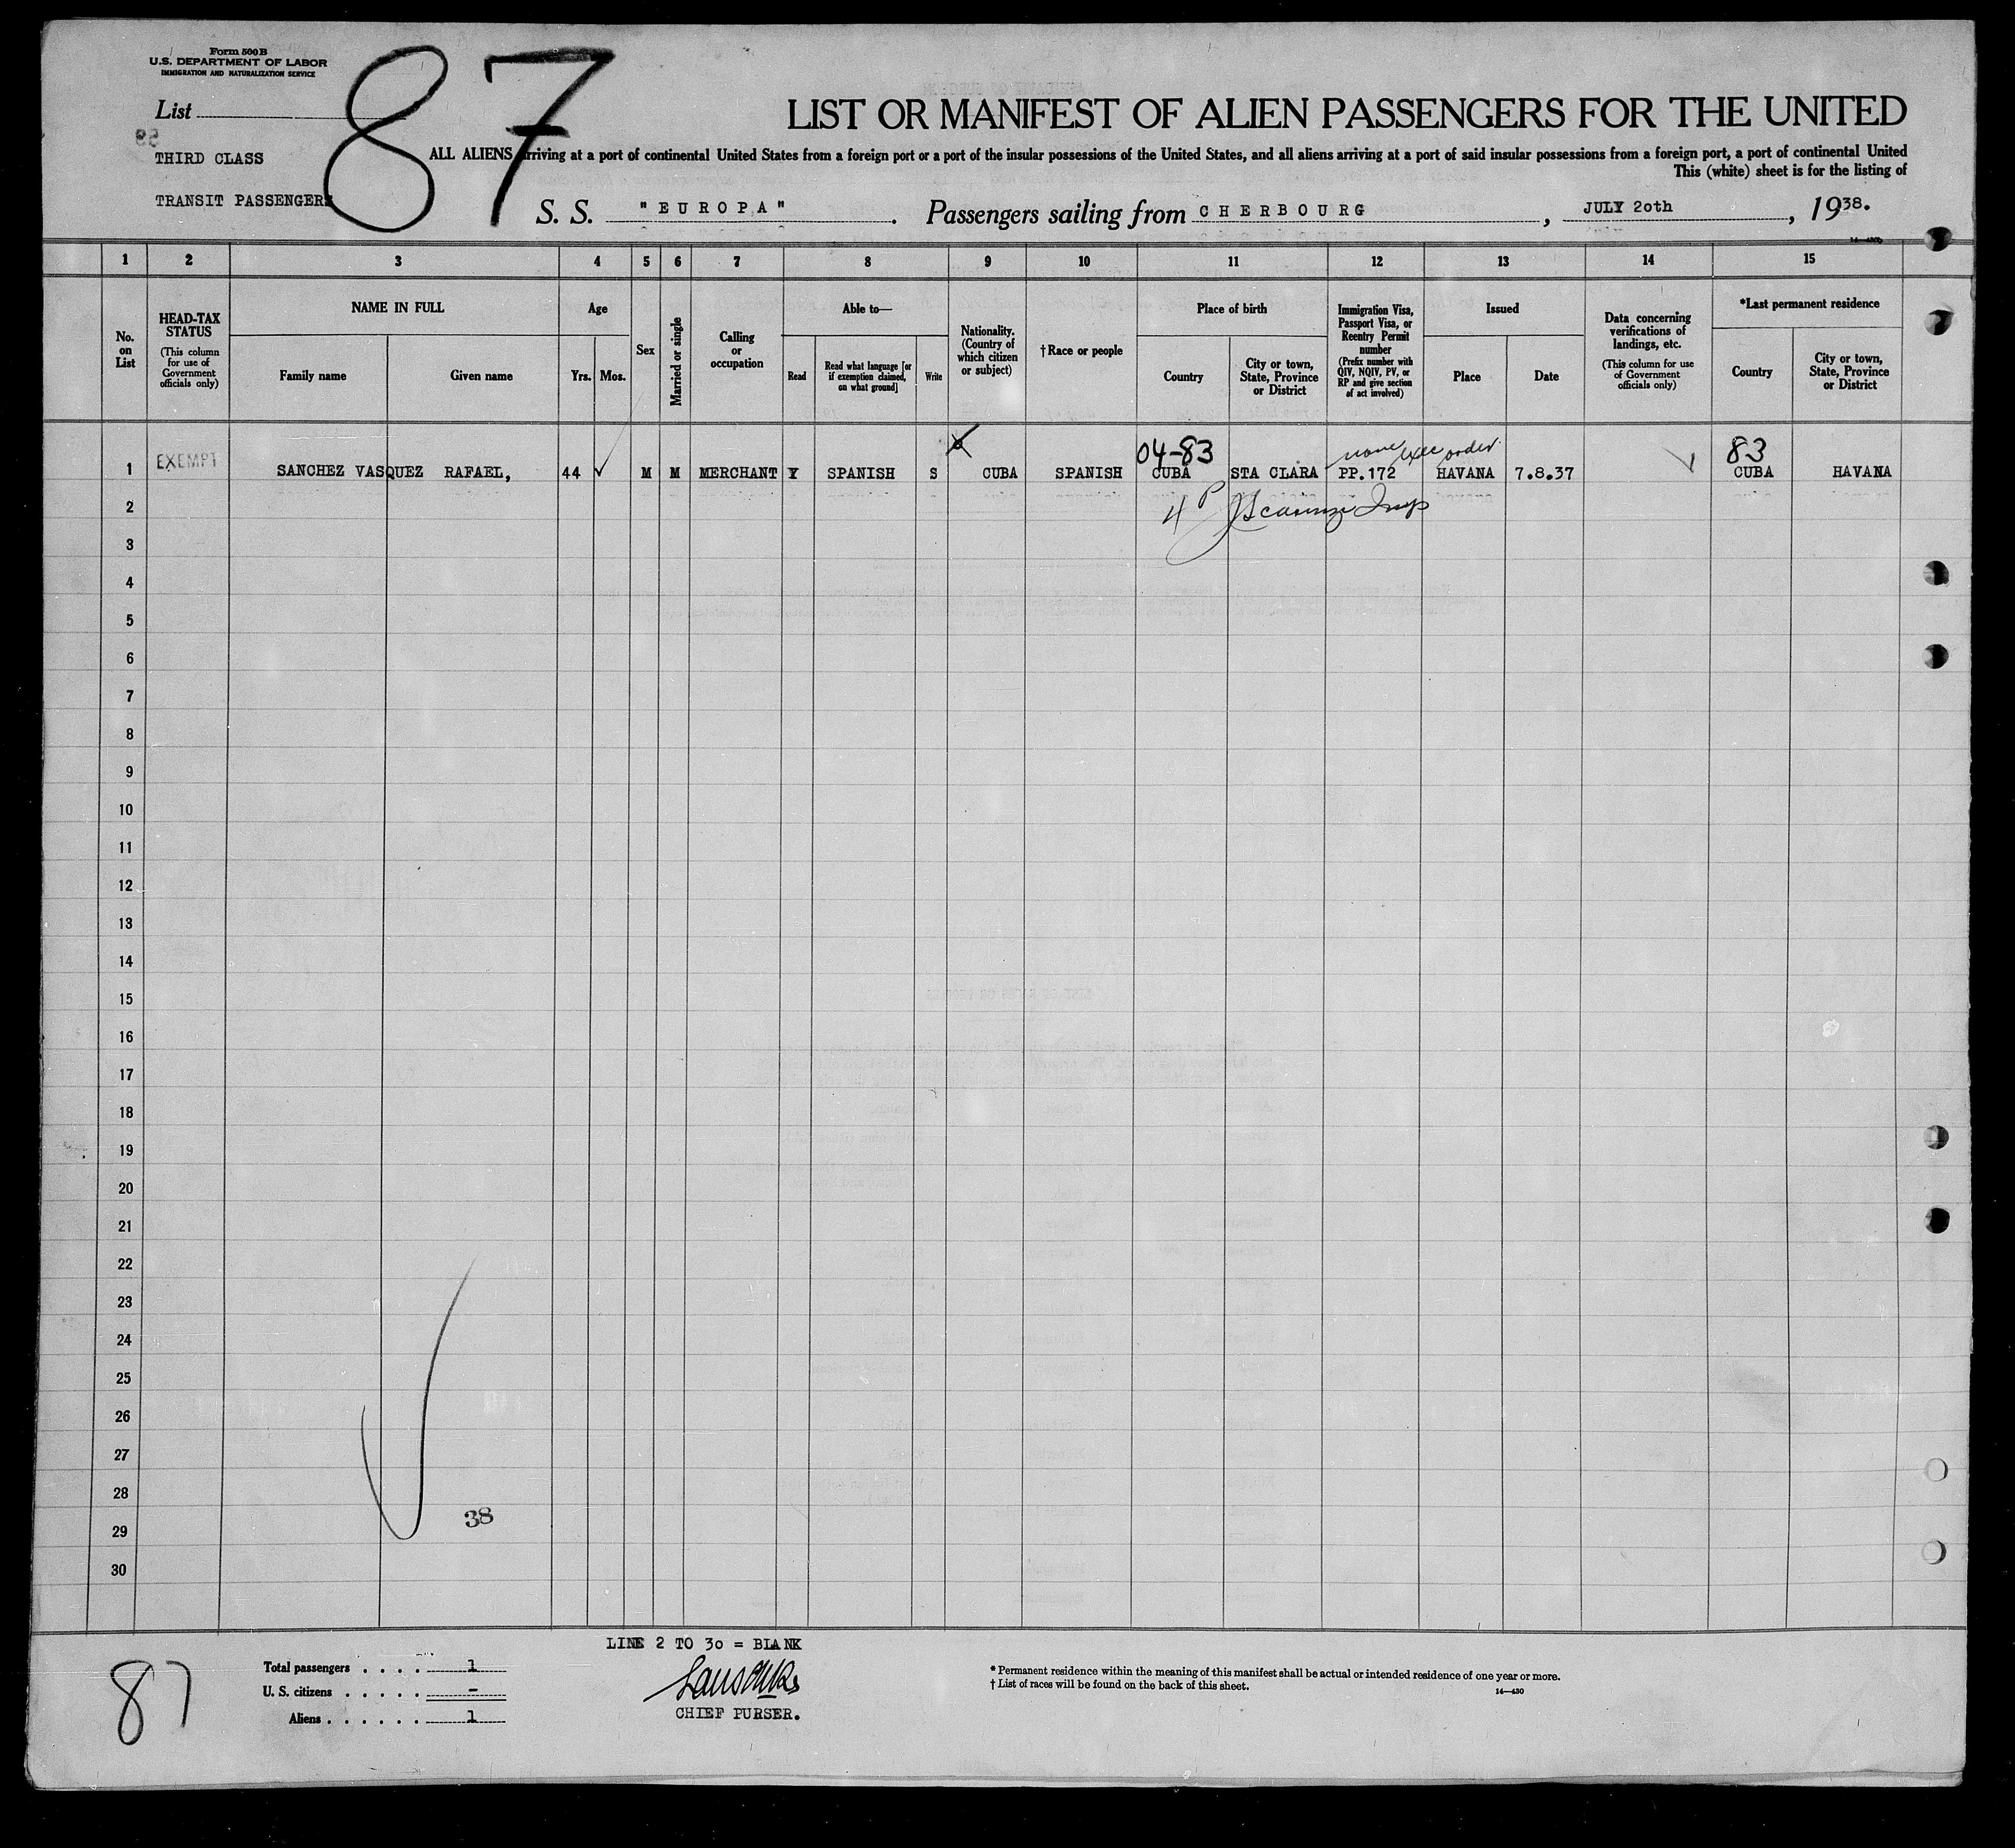 Form 500 B
U.S. DEPARTMENT OF LABOR
IMMIGRATION AND NATURALIZATION SERVICE
87
List
THIRD CLASS
TRANSIT PASSENGERS
LIST OR MANIFEST OF ALIEN PASSENGERS FOR THE UNITED
ALL ALIENS arriving at a port of continental United States from a foreign port or a port of the insular possessions of the United States, and all aliens arriving at a port of said insular possessions from a foreign port, a port of continental United
This (white) sheet is for the listing of
S. S. "EUROPA". Passengers sailing from CHERBOURG, JULY 20th, 1938.
1 2 3 4 5 6 7 8 9 10 11 12 13 14 15
No. on List
HEAD-TAX STATUS (This column for use of Government officials only)
NAME IN FULL
Family name
Given name
Age
Yrs. Mos.
Sex
Married or single
Calling or occupation
Able to—
Read
Read what language [or if exemption claimed, on what ground]
Write
Nationality. (Country of which citizen or subject)
†Race or people
Place of birth
Country
City or town, State, Province or District
Immigration Visa, Passport Visa, or Reentry Permit number (Prefix number with QIV, NQIV, PV, or RP and give section of act involved)
Issued
Place
Date
Data concerning verifications of landings, etc. (This column for use of Government officials only)
*Last permanent residence
Country
City or town, State, Province or District
04-83 none exec order 83
1 EXEMPT SANCHEZ VASQUEZ RAFAEL, 44 ✓ M M MERCHANT Y SPANISH S CUBA SPANISH CUBA STA CLARA PP.172 HAVANA 7.8.37 CUBA HAVANA
2
3
4
5
6
7
8
9
10
11
12
13
14
15
16
17
18
19
20
21
22
23
24
25
26
27
28
38
29
30
LINE 2 TO 30 = BLANK
87
Total passengers . . . . 1
U. S. citizens . . . . . -
Aliens . . . . . . 1
CHIEF PURSER.
* Permanent residence within the meaning of this manifest shall be actual or intended residence of one year or more.
† List of races will be found on the back of this sheet.
14—430